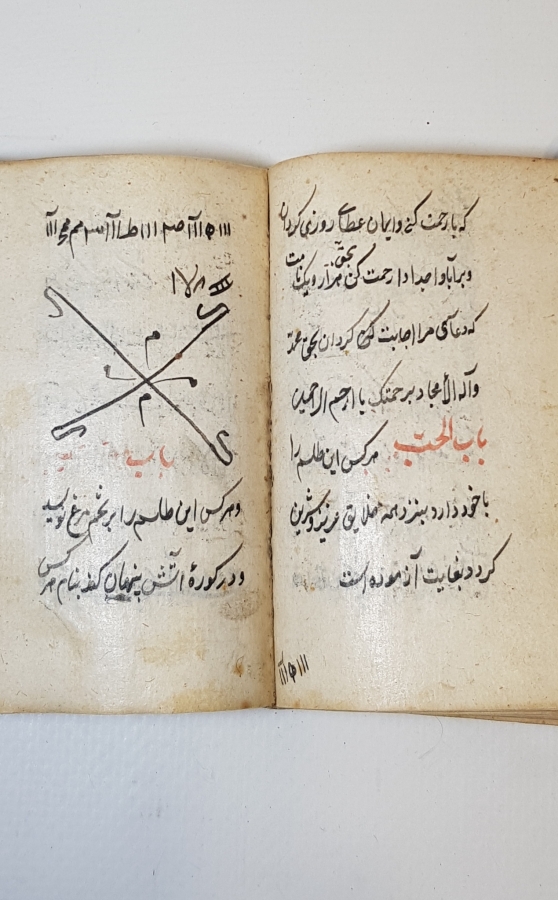 که بارحمت کنی و ایمان عطای روزی کردان
و برآبا و اجداد ارحمت کن هزار و یک نامت
بحق
که دعآی مرا اجابت کن کردان بحق محمد
و آله الأمجاد برحمتک یا ارحم الراحمین
باب الحب هرکس این طلسم را
باخود دارد بنزد همه خلایق عزیز و شیرین
کردد بغایت آزموده است
ااا ها ااا
۱۷۸
م
م
باب
و هرکس این طلسم را بر تخم مرغ نویسد
و در کورهٔ آتش پنهان کند بنام هرکس